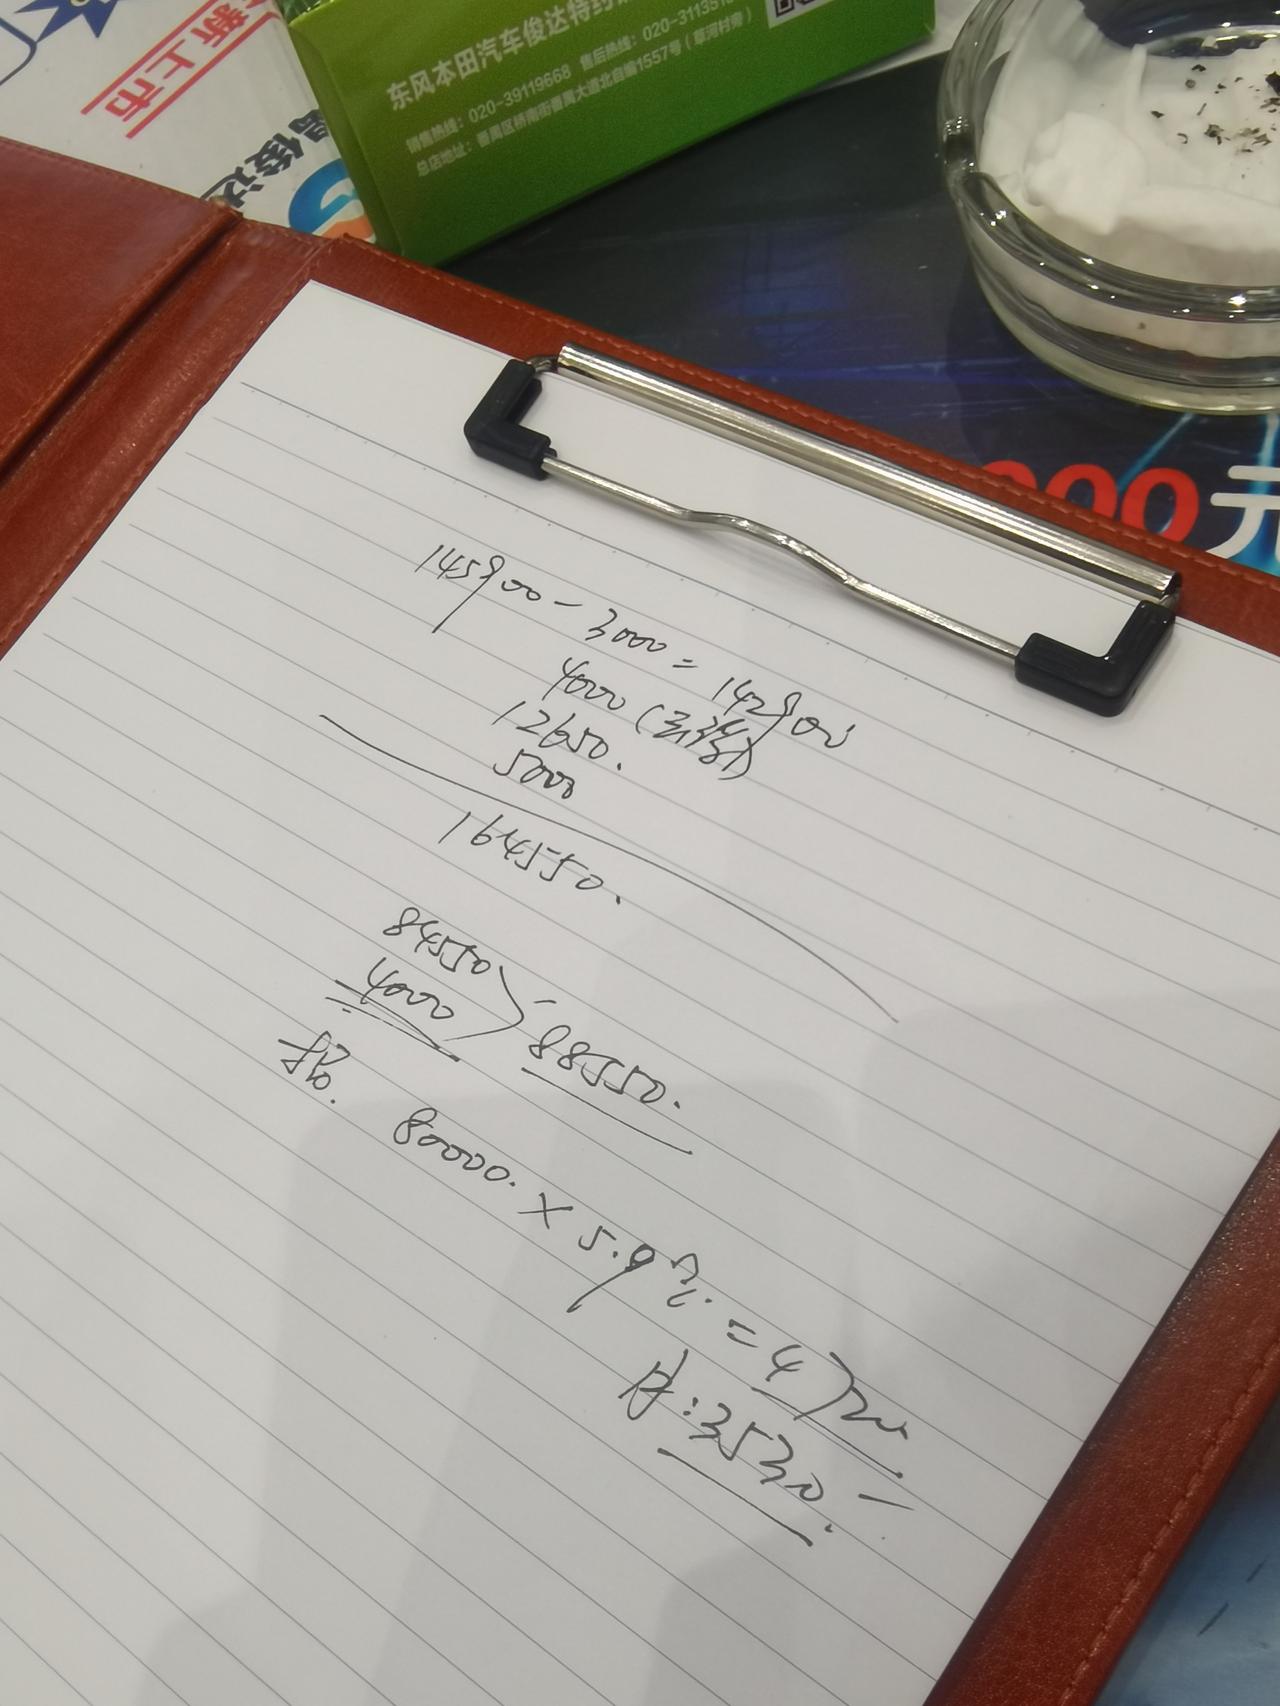 新上市
东风本田汽车俊达特约
销售热线：020-39119668 售后热线：020-3113516
总店地址：番禺区桥南街番禺大道北自编1557号（草河村旁）
000元
145900-3000=142900
4000
12650.
5000
164550.
84550
4000
88550.
80000.×5.9%=4720
月:3530.-